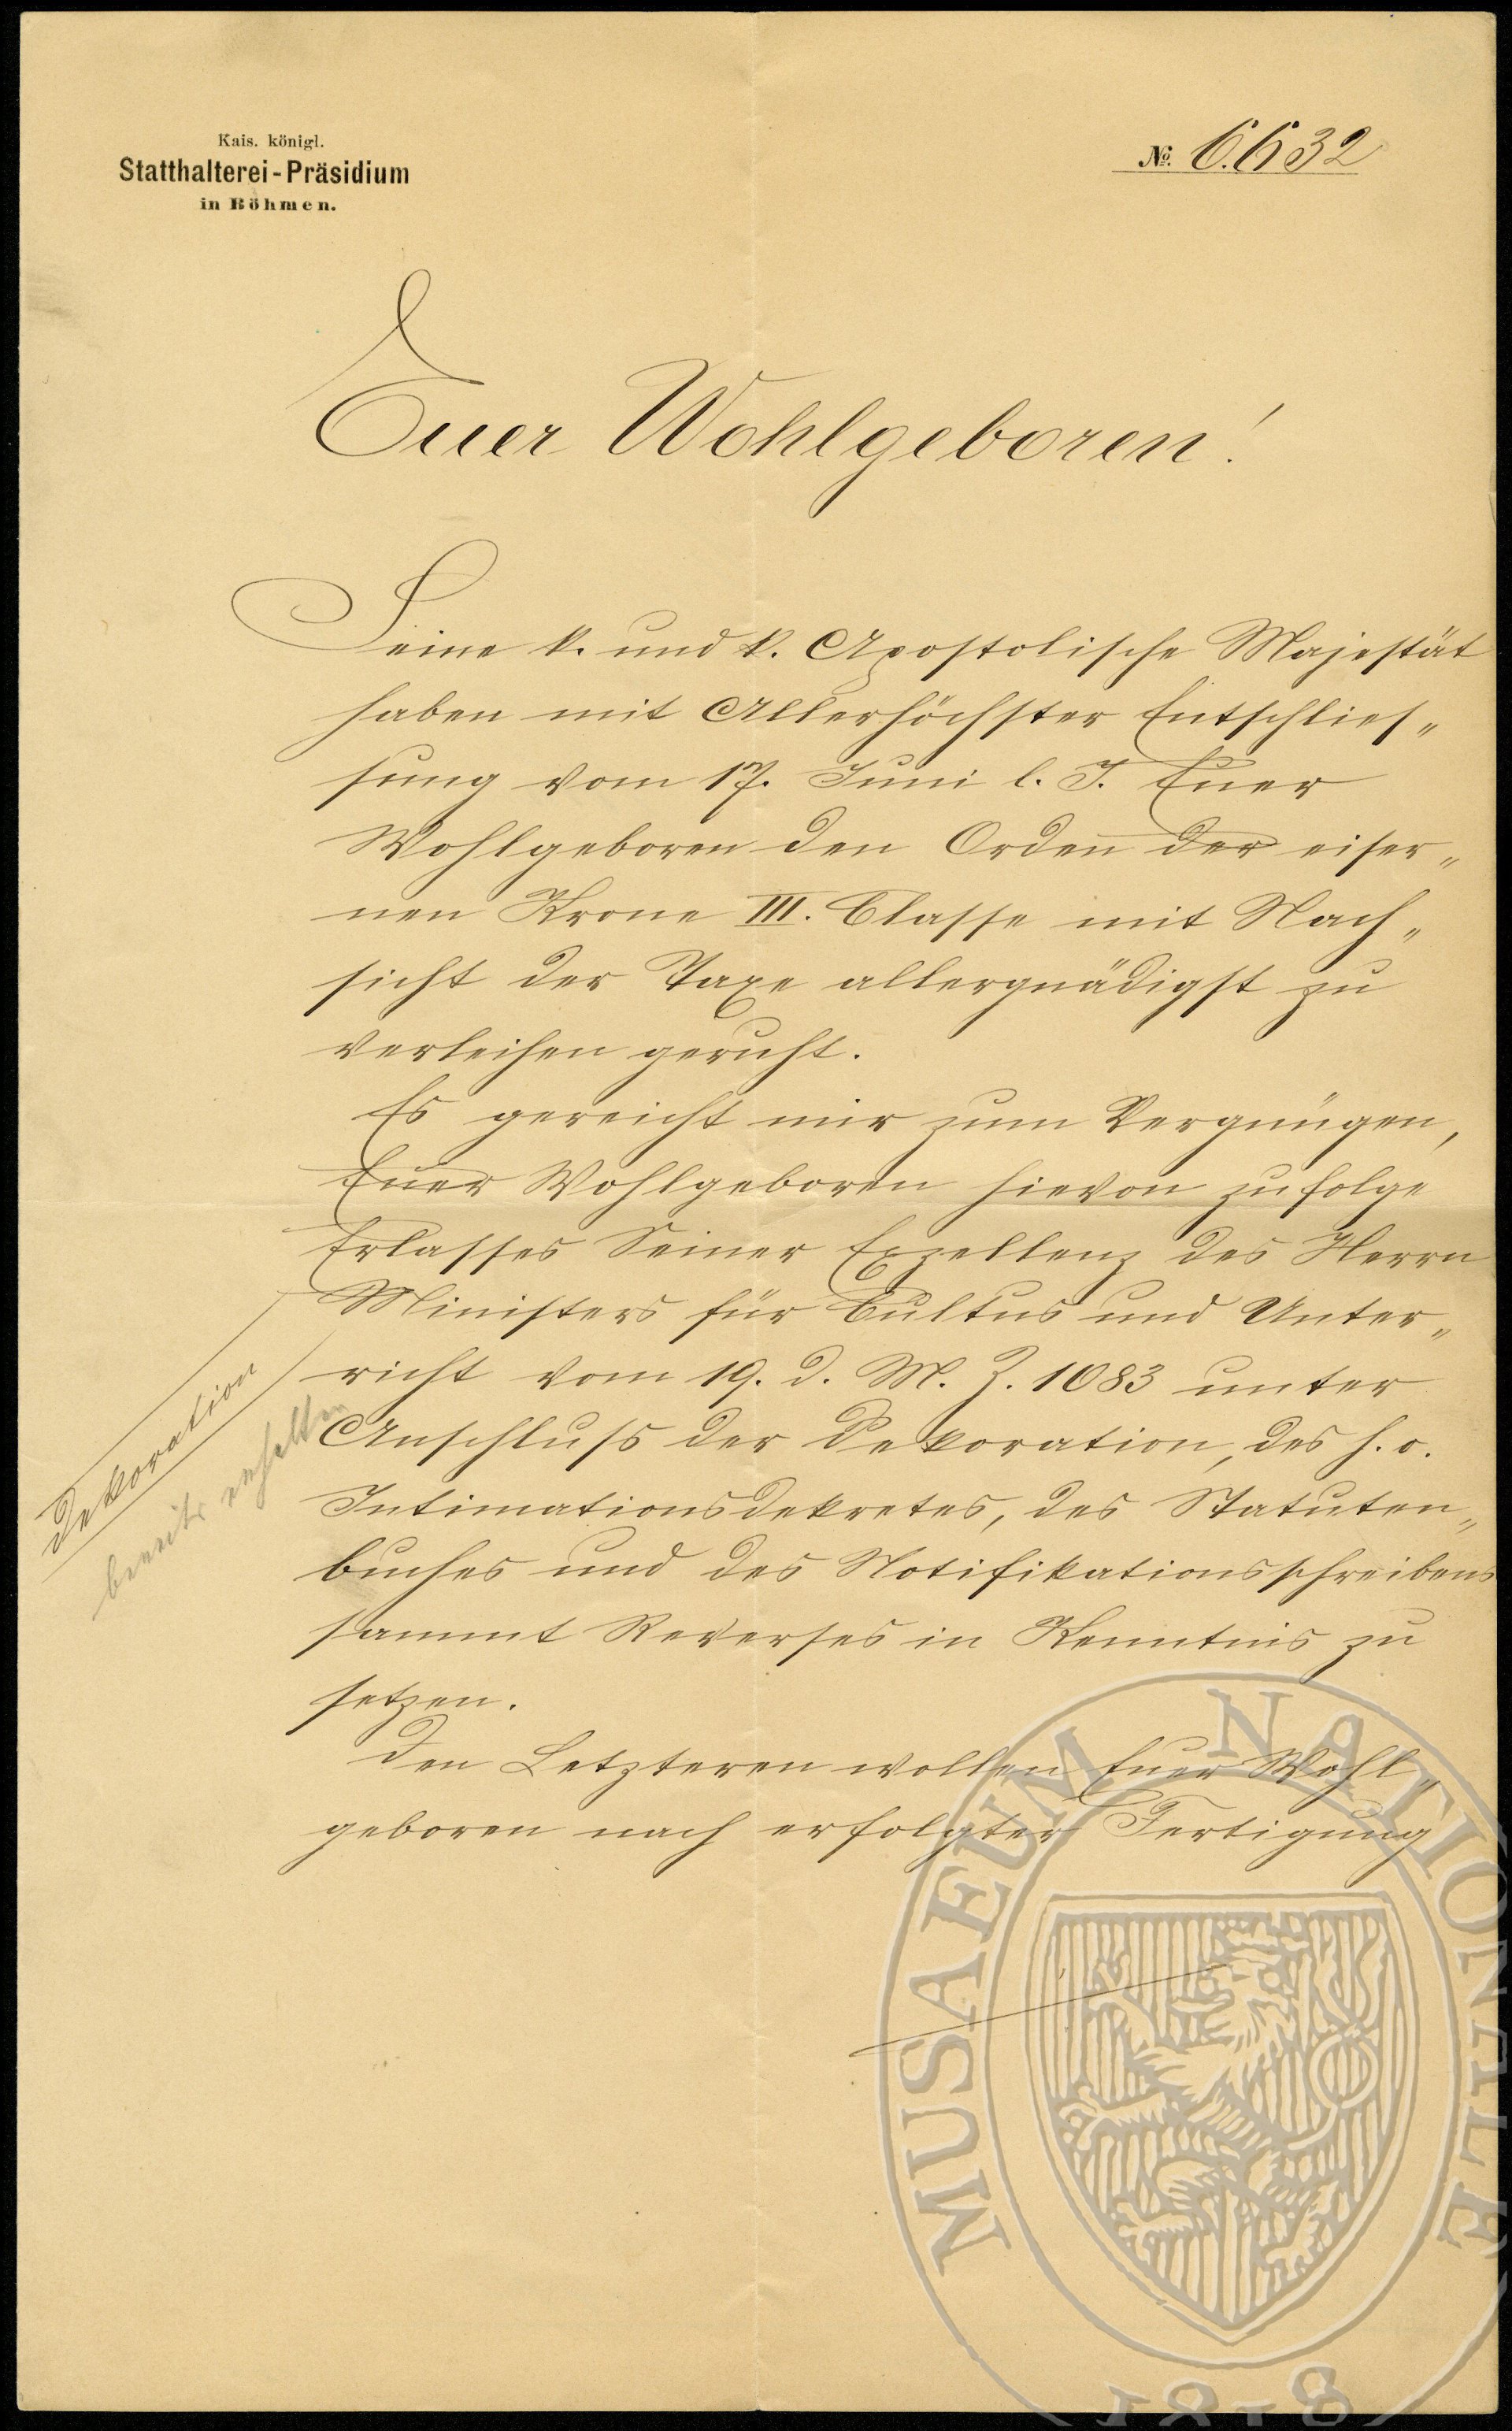 Kais. königl.
Statthalterei-Präsidium
in Böhmen.
No. 6632
Euer Wohlgeboren!
Seine k. und k. Apostolische Majestät
haben mit Allerhöchster Entschlies„
sung vom 17. Juni l. J. Euer
Wohlgeboren den Orden der eiser„
nen Krone III. Classe mit Nach„
sicht der Taxe allergnädigst zu
verleihen geruht.
Es gereicht mir zum Vergnügen,
Euer Wohlgeboren hievon zufolge
Erlasses Seiner Exzellenz des Herrn
Ministers für Cultus und Unter„
richt vom 19. d. M. Z. 1083 unter
Anschluß der Dekoration, des h. o.
Intimationsdekretes, des Statuten„
buches und des Notifikationsschreibens
sammt Reverses in Kenntnis zu
setzen.
Den Letzteren wollen Euer Wohl„
geboren nach erfolgter Fertigung
Dekoration
bereits erhalten
MUSAEUM NATIONALE
1818